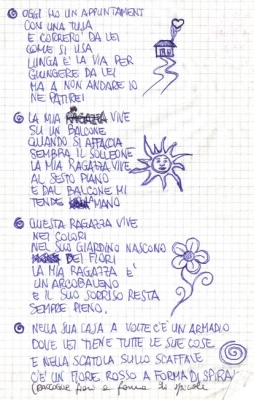 OGGI HO UN APPUNTAMENT
CON UNA TIPA
E CORRERO' DA LEI
COME SI USA
LUNGA È LA VIA PER
GIUNGERE DA LEI
MA A NON ANDARE IO
NE PATIREI
LA MIA RAGAZZA VIVE
SU UN BALCONE
QUANDO SI AFFACCIA
SEMBRA IL SOLLEONE
LA MIA RAGAZZA VIVE
AL SESTO PIANO
E DAL BALCONE MI
TENDE MANO
QUESTA RAGAZZA VIVE
NEI COLORI
NEL SUO GIARDINO NASCONO
DEI FIORI
LA MIA RAGAZZA E'
UN ARCOBALENO
E IL SUO SORRISO RESTA
SEMPRE PIENO.
NELLA SUA CASA A VOLTE C'È UN ARMADIO
DOVE LEI TIENE TUTTE LE SUE COSE
E NELLA SCATOLA SULLO SCAFFALE
C'È UN FIORE ROSSO A FORMA DI SPIRA
fiori a forma di spirale